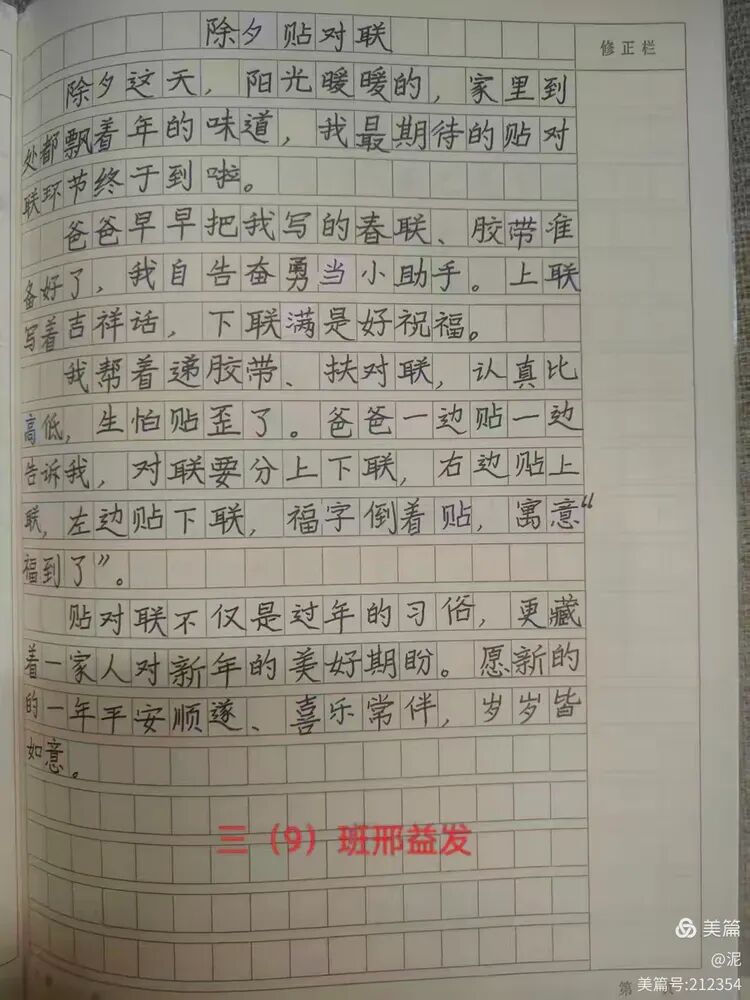 除夕贴对联
修正栏
除夕这天，阳光暖暖的，家里到
处都飘着年的味道，我最期待的贴对
联环节终于到啦。
爸爸早早把我写的春联、胶带准
备好了，我自告奋勇当小助手。上联
写着吉祥话，下联满是好祝福。
我帮着递胶带、扶对联，认真比
高低，生怕贴歪了。爸爸一边贴一边
告诉我，对联要分上下联，右边贴上
联，左边贴下联，福字倒着贴，寓意“
福到了”。
贴对联不仅是过年的习俗，更藏
着一家人对新年的美好期盼。愿新的
的一年平安顺遂、喜乐常伴，岁岁皆
如意。
三（9）班邢益发
美篇
@泥
第
美篇号:212354